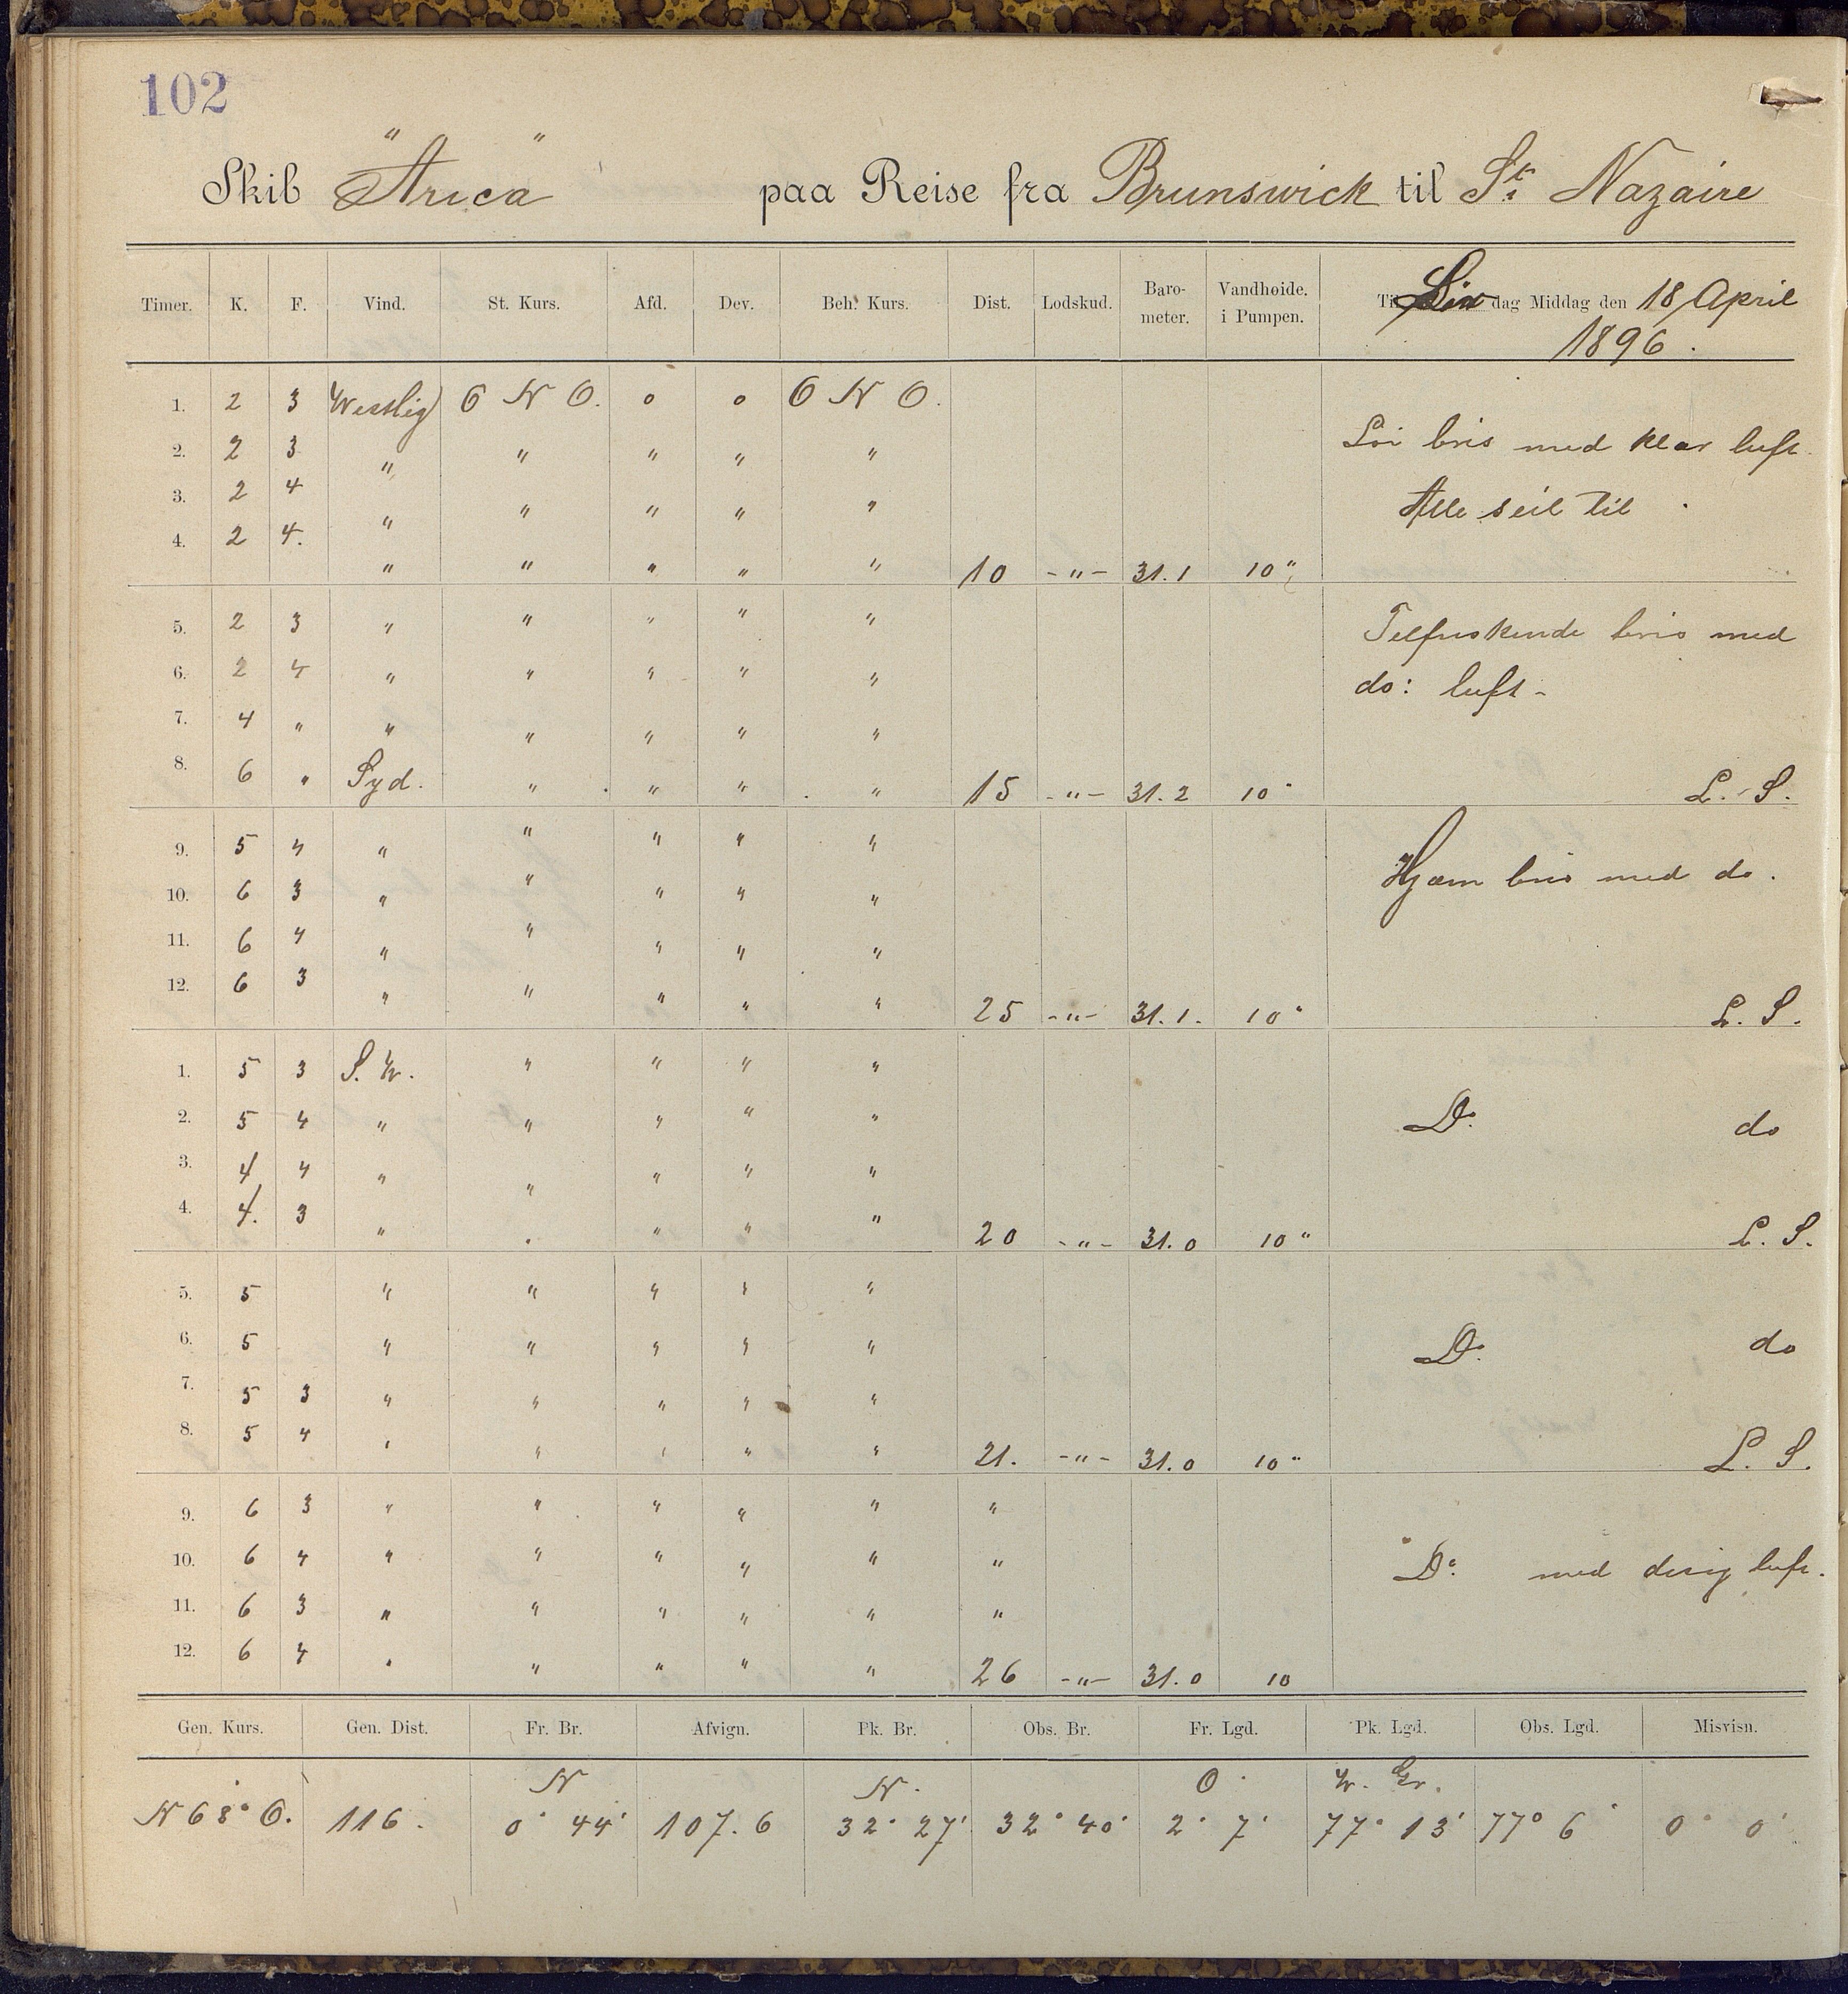 102
Skib "Arica" paa Reise fra Brunswick til St. Nazaire
Timer. K. F. Vind. St. Kurs. Afd. Dev. Beh. Kurs. Dist. Lodskud. Baro-meter. Vandhøide. i Pumpen. Til dag Middag den 18 April
1896.
1. 2 3 Westlig O N O. 0 0 O N O.
2. 2 3 " " " " " Löi bris med klar luft.
3. 2 4 " " " " " Alle seil til.
4. 2 4. " " " " " 10 -"- 31.1 10"
5. 2 3 " " " " " Tilfriskende bris med
6. 2 4 " " " " " do: luft-
7. 4 " " " " " "
8. 6 " Syd. " " " " 15 -"- 31.2 10" L. S.
9. 5 4 " " " " "
10. 6 3 " " " " " bris med do.
11. 6 4 " " " " "
12. 6 3 " " " " " 25 -"- 31.1. 10" L. S.
1. 5 3 S. W. " " " "
2. 5 4 " " " " " Do. do
3. 4 4 " " " " "
4. 4. 3 " " " " " 20 -"- 31.0 10" L. S.
5. 5 " " " " "
6. 5 " " " " " Do. do
7. 5 3 " " " " "
8. 5 4 " " " " " 21. -"- 31.0 10" L. S.
9. 6 3 " " " " " "
10. 6 4 " " " " " " Do: med disig luft.
11. 6 3 " " " " " "
12. 6 4 " " " " " 26 -"- 31.0 10
Gen. Kurs. Gen. Dist. Fr. Br. Afvign. Pk. Br. Obs. Br. Fr. Lgd. Pk. Lgd. Obs. Lgd. Misvisn.
N N. O. W. Gr.
N 68° O. 116. 0° 44' 107.6 32° 27' 32° 40' 2° 7' 77° 13' 77° 6' 0° 0'